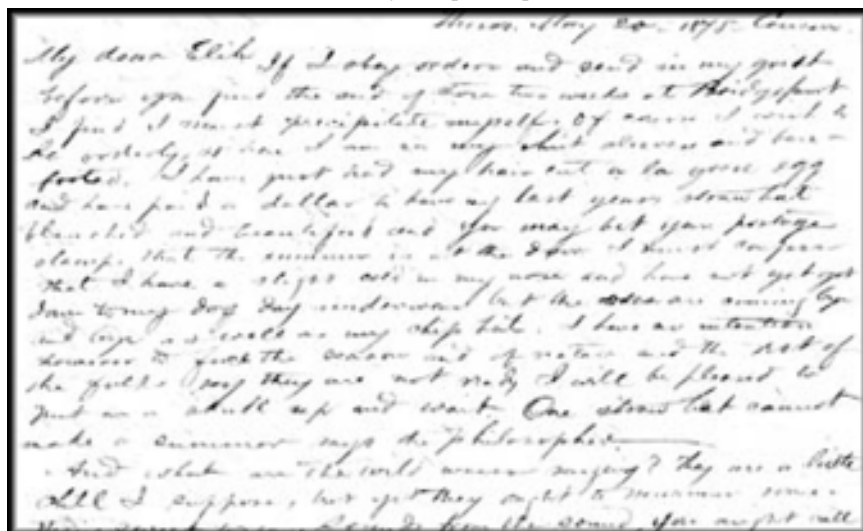 May 20 - 1875 -
My dear Elih If I obey orders and send in my
before you find the end of two weeks at Bridgeport
I find I must precipitate myself. Of course I wish to
be orderly, so here I am in my shirt sleeves and bare-
footed. I have just had my hair cut a la goose egg
and have paid a dollar to have my last years straw hat
bleached and beautified and you may bet your postage
stamps that the summer is at the door. I must confess
that I have a slight cold in my nose and have not yet got
down to my dog day underwear but the are coming by
and as well as my chip hat. I have no intention
however to the season out of nature and the rest of
the folks say they are not ready I will be pleased to
put on a and wait. One straw hat cannot
make a summer says the philosopher
And what are the wild waves saying? They are a little
I suppose, but yet they ought to murmur some
from the sound. You might call